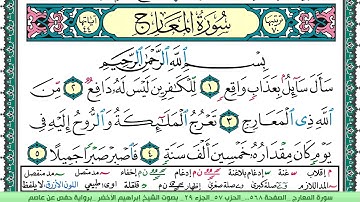 سُورَةُ المَعَارِجِ
بِسْمِ اللَّهِ الرَّحْمَنِ الرَّحِيمِ
سَأَلَ سَآئِلٌۢ بِعَذَابٍ وَاقِعٍ ١ لِّلْكَٰفِرِينَ لَيْسَ لَهُۥ دَافِعٌ ٢ مِّنَ
ٱللَّهِ ذِى ٱلْمَعَارِجِ ٣ تَعْرُجُ ٱلْمَلَٰٓئِكَةُ وَٱلرُّوحُ إِلَيْهِ فِى
يَوْمٍ كَانَ مِقْدَارُهُۥ خَمْسِينَ أَلْفَ سَنَةٍ ٤ فَٱصْبِرْ صَبْرًا جَمِيلًا ٥
سورة المعارج الصفحة ٥٦٨ الحزب ٥٧ الجزء ٢٩ بصوت الشيخ ابراهيم الاخضر برواية حفص عن عاصم